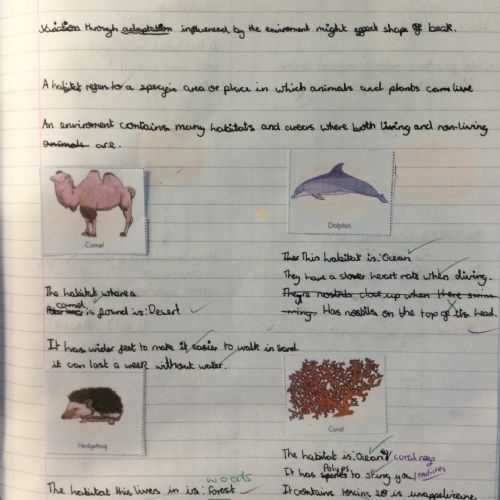 Variation through adaptation influenced by the enviroment might effect shape of beak.
A habitat refers to a specific area or place in which animals and plants can live
An enviroment contains many habitats and areas where both living and non-living
animals are.
Camel
Dolphin
The habitat where a
camel
is found is: Desert
It has wider feet to make it easier to walk in sand
it can last a week without water.
This habitat is: Ocean
They have a slower heart rate when diving.
nostrils close up when
Has nostils on the top of its head.
Hedgehog
Coral
woods
The habitat this lives in is: forest
The habitat is: Ocean / coral reef
Polyps
It has spines to sting you
It contains toxins so is unappetizing